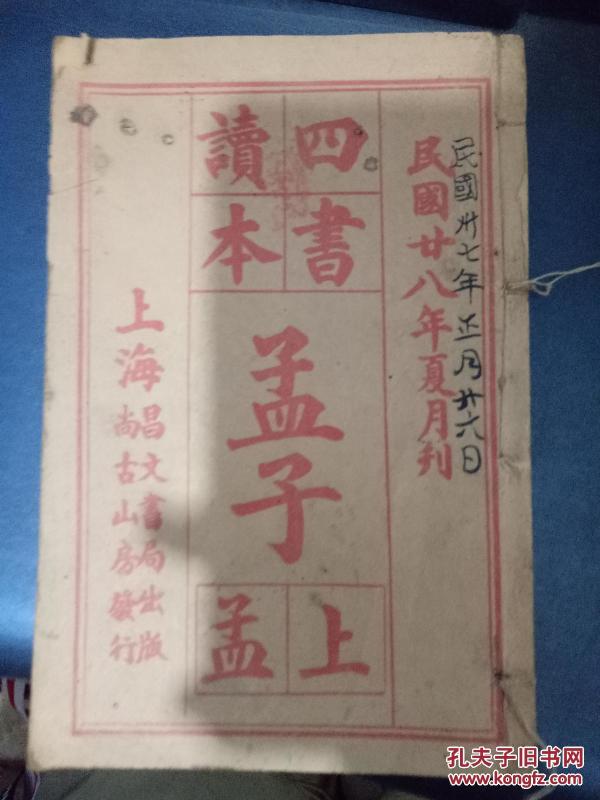 民國卅七年正月廿六日
民國廿八年夏月刋
四書
讀本
孟子
上孟
上海
昌文書局出版
尚古山房發行
孔夫子旧书网
www.kongfz.com